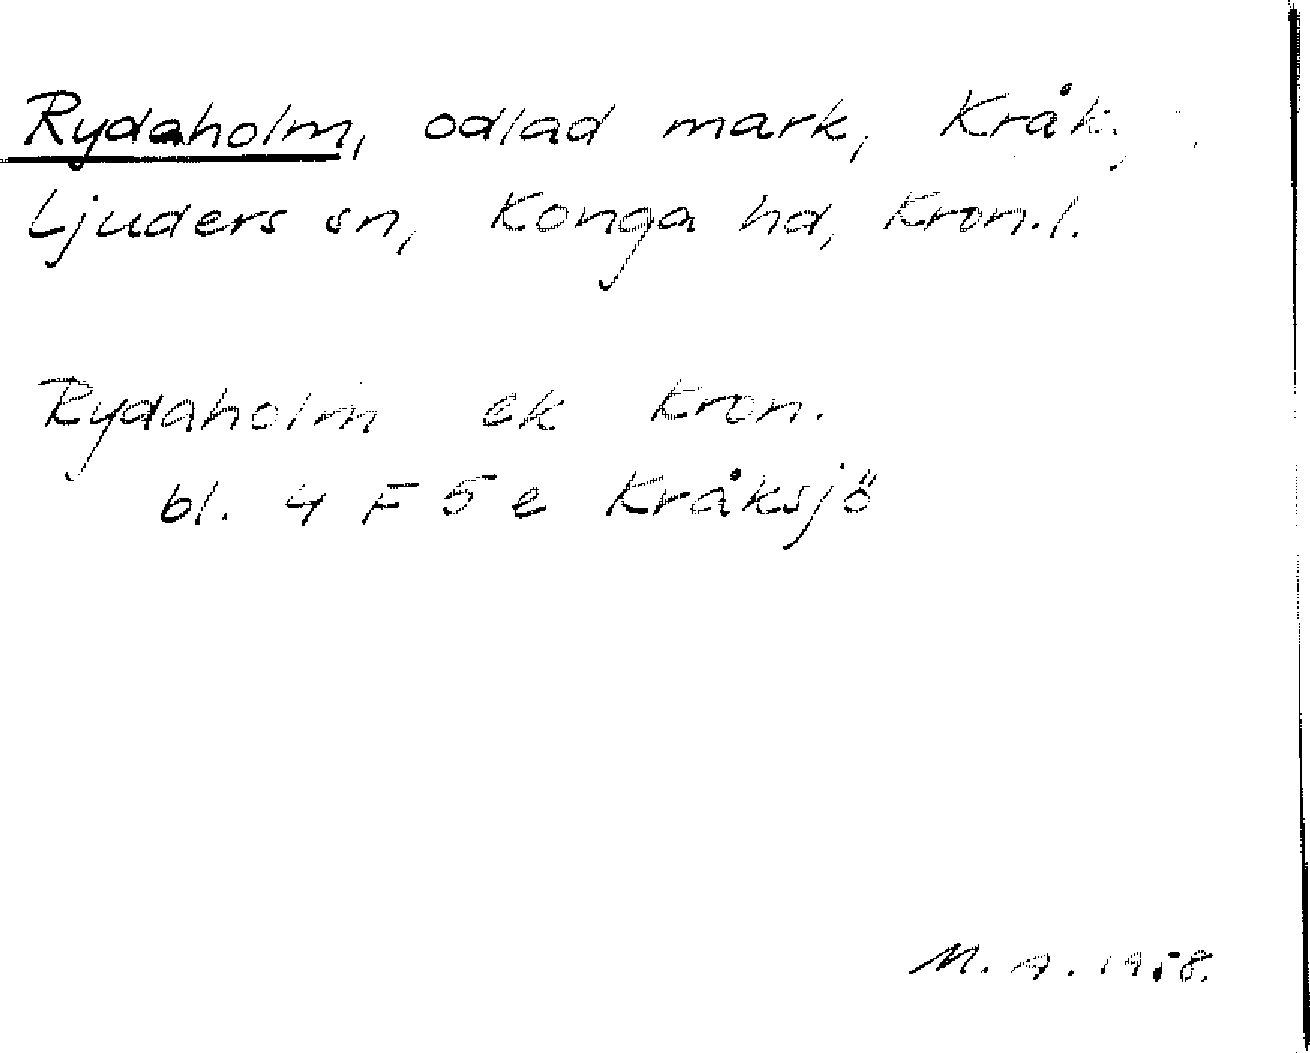 Rydaholm, odlad mark,
Ljuders sn, Konga hd, Kron.l.
Rydaholm ek Kron.
bl. 4 F 5 e Kråksjö
M. A. 1958.